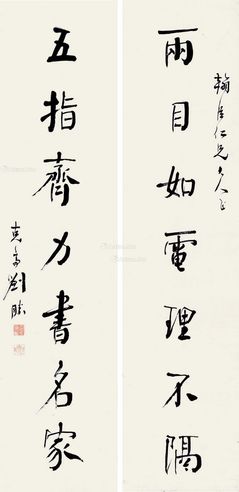 翰臣仁兄大人正
兩目如電理不隔
五指齊力書名家
克齋劉